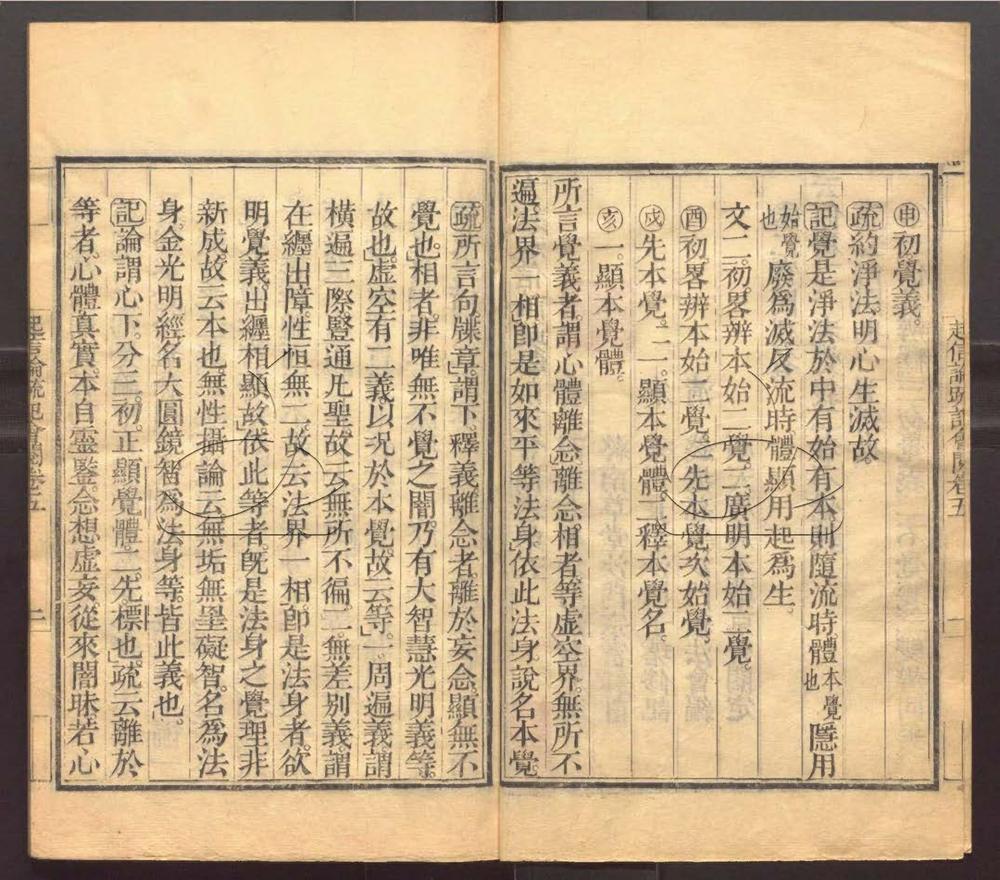 申初覺義。
疏約淨法明心生滅故。
記覺是淨法於中有始有本則隨流時。體本覺也隱用
始覺也廢爲滅反流時體顯用起爲生。
文二。初畧辨本始二覺。二廣明本始二覺。
酉初畧辨本始二覺二。先本覺次始覺。
戍先本覺。二一。顯本覺體。二釋本覺名。
亥一。顯本覺體。
所言覺義者。謂心體離念。離念相者等虛空界。無所不
遍。法界一相。卽是如來平等法身。依此法身說名本覺
疏所言句牒章。謂下。釋義離念者離於妄念。顯無不
覺也。相者。非唯無不覺之闇。乃有大智慧光明義等。
故也。虛空有二義以况於本覺。故云等。一。周遍義謂
橫遍三際豎通凡聖。故云無所不徧。二。無差別義。謂
在纏出障。性恒無二。故云法界一相。卽是法身者。欲
明覺義出纏相顯。故依此等者。旣是法身之覺。理非
新成。故云本也。無性攝論云。無垢無罣礙智。名爲法
身。金光明經名大圓鏡智爲法身等。皆此義也。
記論謂心下。分三。初。正顯覺體。二。先標也。疏云離於
等者。心體眞實。本自靈鑒。念想虛妄。從來闇昧。若心